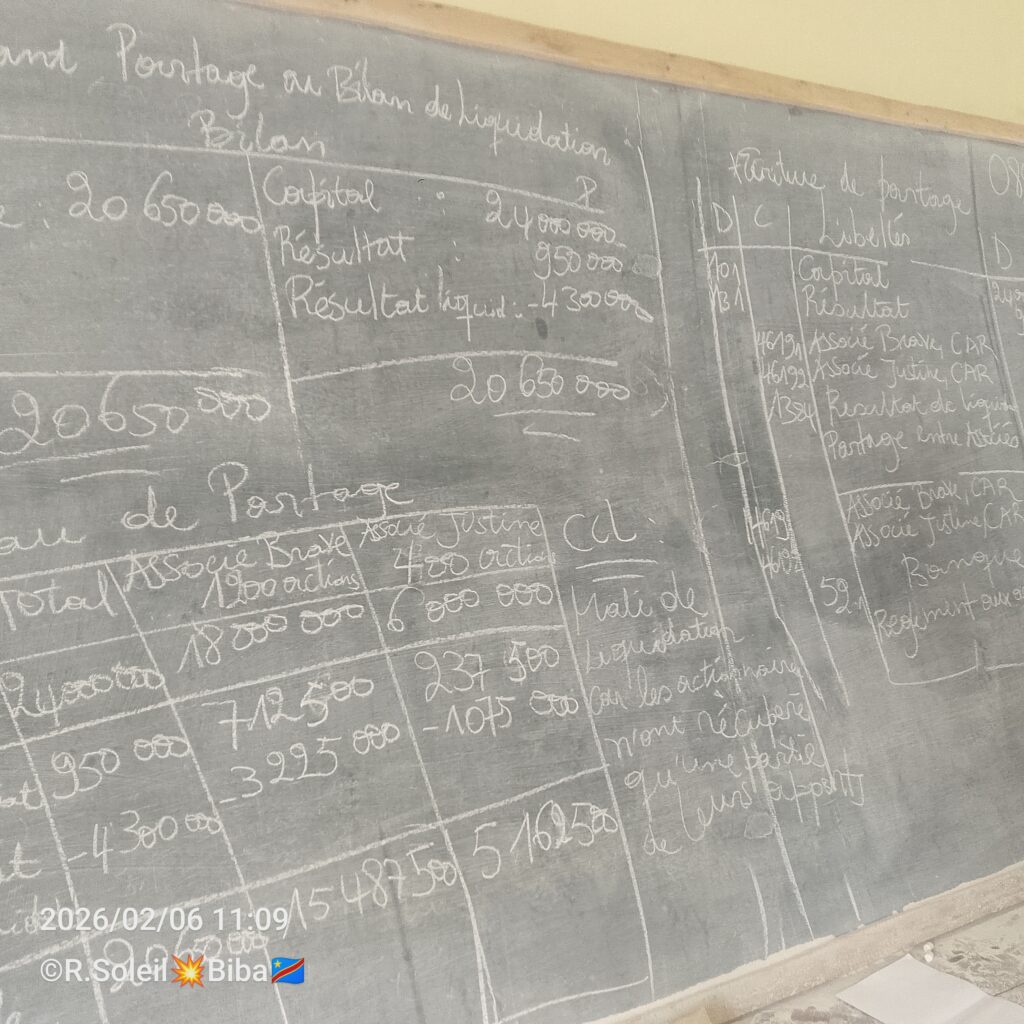 Partage au Bilan de Liquidation
Bilan
P
20 650 000
Capital : 24 000 000
Résultat : 950 000
Résultat liquid : -4 300 000
20 650 000
20 650 000
de Partage
Total
Associé Brave
1200 actions
Associé Justine
400 actions
24 000 000
18 000 000
6 000 000
950 000
712 500
237 500
-4 300 000
-3 225 000
-1 075 000
15 487 500
5 162 500
Ccl :
Mali de
liquidation
car les actionnaires
n'ont récupéré
qu'une partie
de leurs apports
Ecriture de partage
D
C
Libellés
D
101
Capital
131
Résultat
Associé Brave, CAR
Associé Justine, CAR
Résultat de liquid
Partage entre Associés
Associé Brave, CAR
Associé Justine, CAR
Banque
Règlement aux
2026/02/06 11:09
©R.Soleil💥Biba🇨🇩